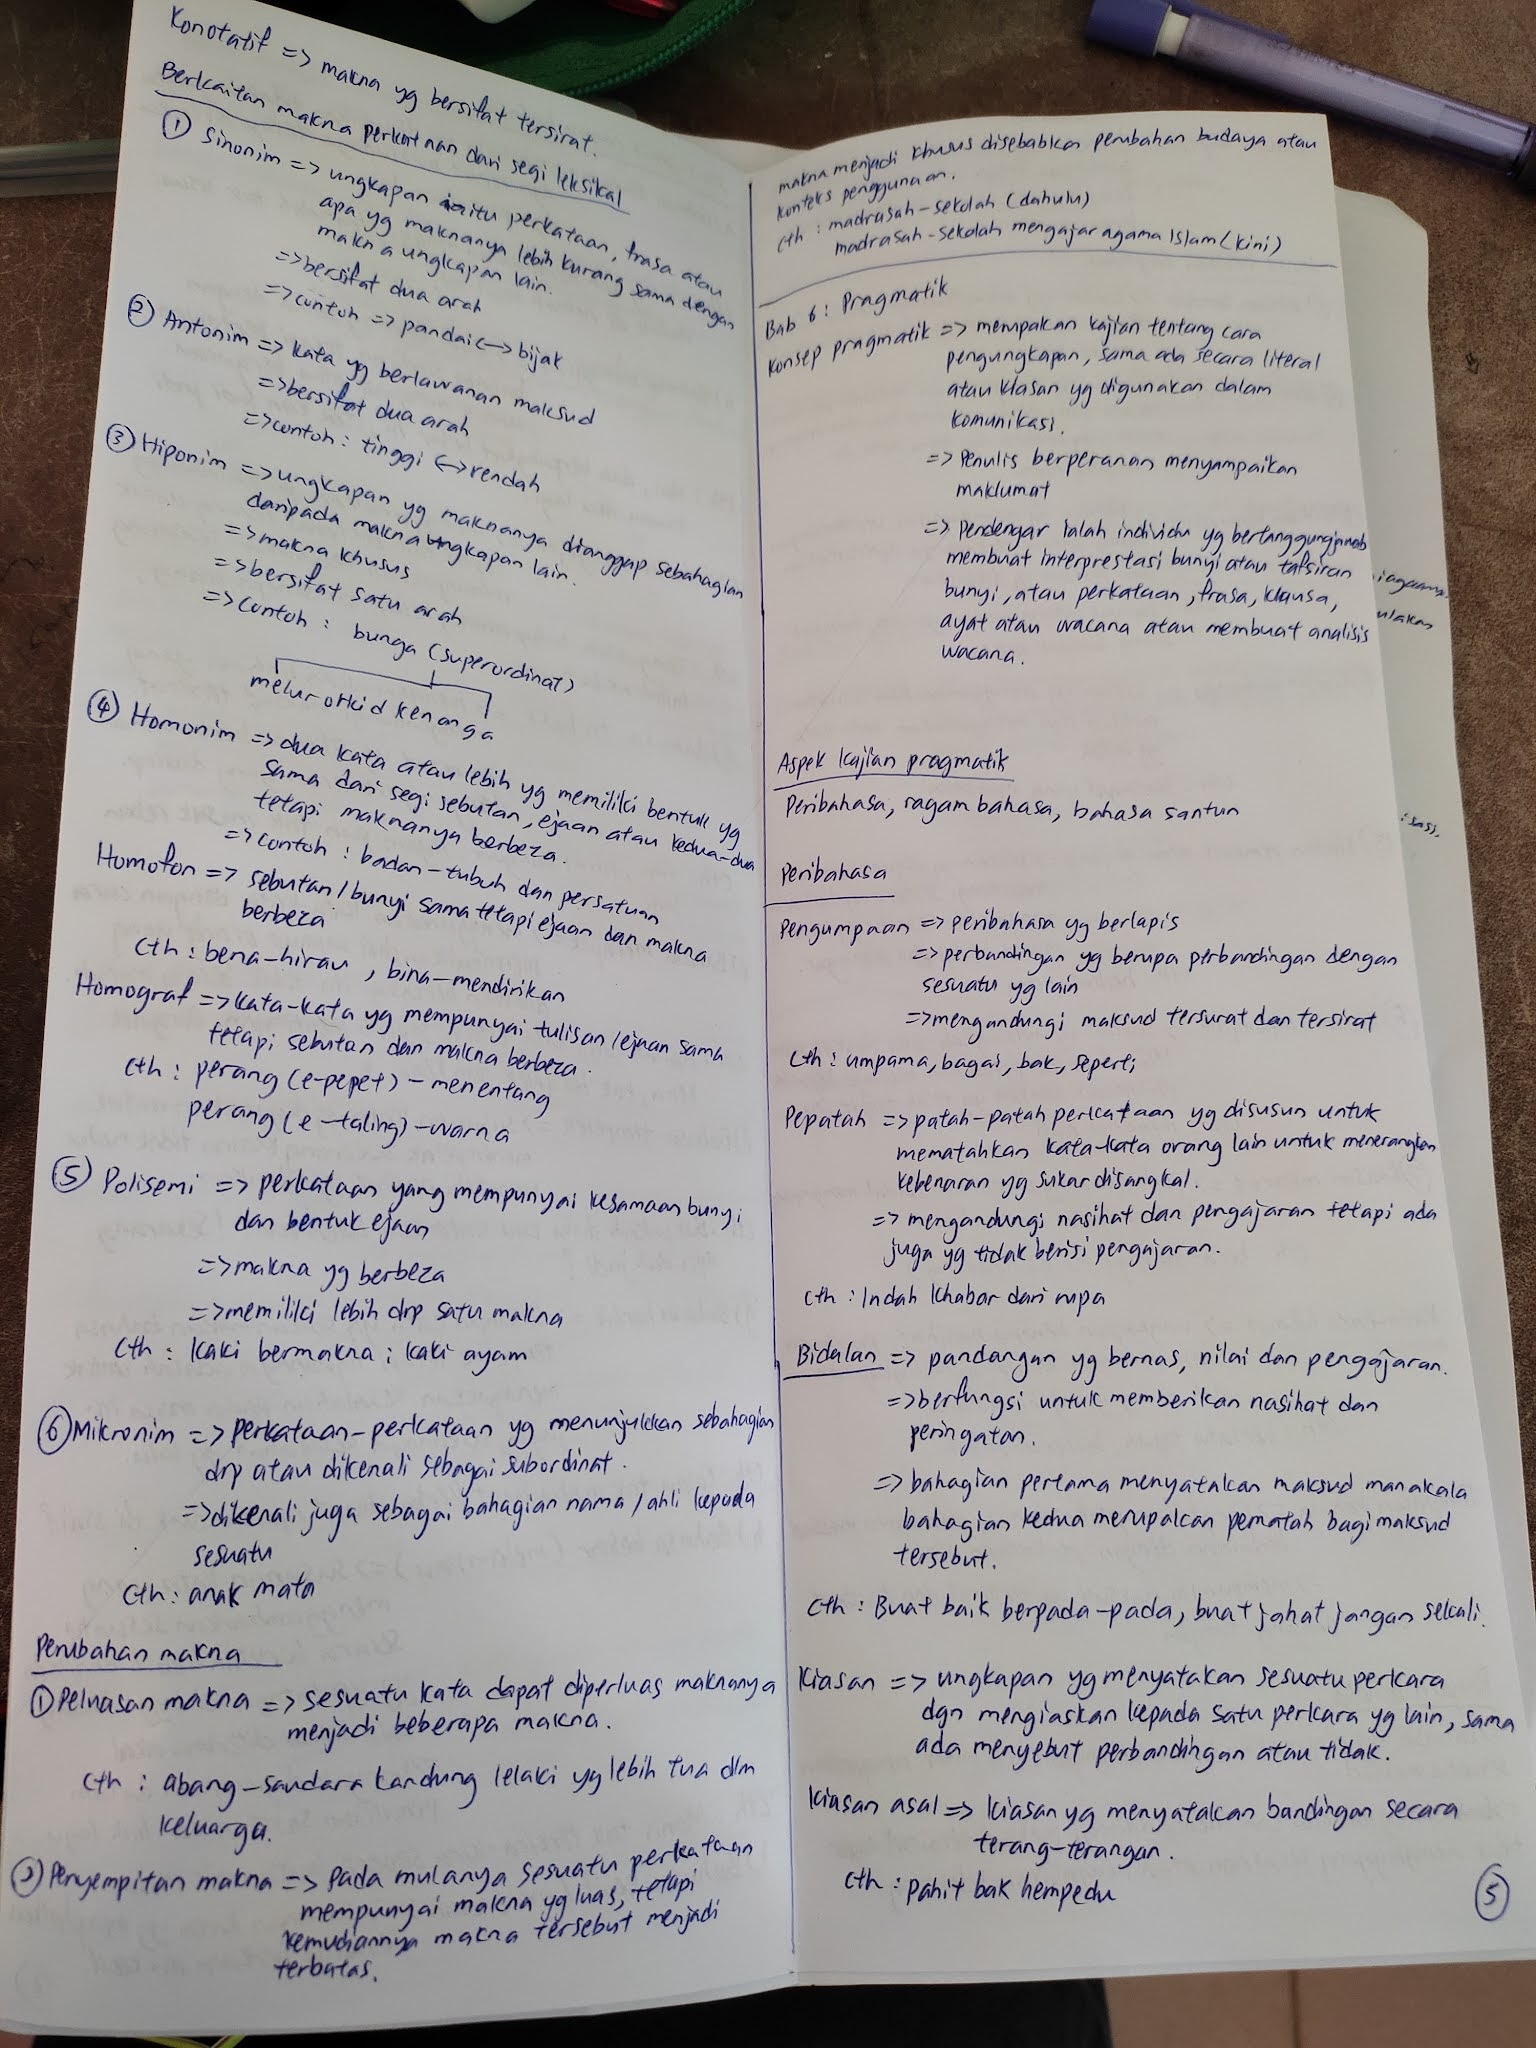 Konotatif => makna yg bersifat tersirat.
Berkaitan makna perkataan dari segi leksikal
① Sinonim => ungkapan iaitu perkataan, frasa atau
apa yg maknanya lebih kurang sama dengan
makna ungkapan lain.
=> bersifat dua arah
=> contoh => pandai <-> bijak
② Antonim => kata yg berlawanan maksud
=> bersifat dua arah
=> contoh : tinggi <-> rendah
③ Hiponim => ungkapan yg maknanya dianggap sebahagian
daripada makna ungkapan lain.
=> makna khusus
=> bersifat satu arah
=> contoh : bunga (superordinat)
melur orkid kenanga
④ Homonim => dua kata atau lebih yg memiliki bentuk yg
sama dari segi sebutan, ejaan atau kedua-dua
tetapi maknanya berbeza.
=> contoh : badan - tubuh dan persatuan
Homofon => sebutan / bunyi sama tetapi ejaan dan makna
berbeza
cth : bena - hirau , bina - mendirikan
Homograf => kata-kata yg mempunyai tulisan / ejaan sama
tetapi sebutan dan makna berbeza.
cth : perang (e-pepet) - menentang
perang (e-taling) - warna
⑤ Polisemi => perkataan yang mempunyai kesamaan bunyi
dan bentuk ejaan
=> makna yg berbeza
=> memiliki lebih drp satu makna
cth : kaki bermakna ; kaki ayam
⑥ Mikronim => perkataan-perkataan yg menunjukkan sebahagian
drp atau dikenali sebagai subordinat.
=> dikenali juga sebagai bahagian nama / ahli kepada
sesuatu
cth : anak mata
Perubahan makna
① Peluasan makna => sesuatu kata dapat diperluas maknanya
menjadi beberapa makna.
cth : abang - saudara kandung lelaki yg lebih tua dlm
keluarga.
② Penyempitan makna => pada mulanya sesuatu perkataan
mempunyai makna yg luas, tetapi
kemudiannya makna tersebut menjadi
terbatas.
makna menjadi khusus disebabkan perubahan budaya atau
konteks penggunaan.
cth : madrasah - sekolah (dahulu)
madrasah - sekolah mengajar agama Islam (kini)
Bab 6 : Pragmatik
Konsep pragmatik => merupakan kajian tentang cara
pengungkapan, sama ada secara literal
atau kiasan yg digunakan dalam
komunikasi.
=> Penulis berperanan menyampaikan
maklumat
=> Pendengar ialah individu yg bertanggungjawab
membuat interprestasi bunyi atau tafsiran
bunyi, atau perkataan, frasa, klausa,
ayat atau wacana atau membuat analisis
wacana.
Aspek kajian pragmatik
Peribahasa, ragam bahasa, bahasa santun
Peribahasa
Pengumpaan => peribahasa yg berlapis
=> perbandingan yg berupa perbandingan dengan
sesuatu yg lain
=> mengandungi maksud tersurat dan tersirat
cth : umpama, bagai, bak, seperti
Pepatah => patah-patah perkataan yg disusun untuk
mematahkan kata-kata orang lain untuk menerangkan
kebenaran yg sukar disangkal.
=> mengandungi nasihat dan pengajaran tetapi ada
juga yg tidak berisi pengajaran.
cth : Indah khabar dari rupa
Bidalan => pandangan yg bernas, nilai dan pengajaran.
=> berfungsi untuk memberikan nasihat dan
peringatan.
=> bahagian pertama menyatakan maksud manakala
bahagian kedua merupakan pematah bagi maksud
tersebut.
cth : Buat baik berpada-pada, buat jahat jangan sekali.
Kiasan => ungkapan yg menyatakan sesuatu perkara
dgn mengiaskan kepada satu perkara yg lain, sama
ada menyebut perbandingan atau tidak.
Kiasan asal => kiasan yg menyatakan bandingan secara
terang-terangan.
cth : pahit bak hempedu
⑤